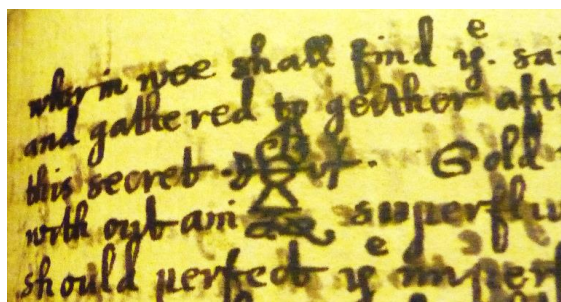 wherin wee shall find yᵉ. sa
and gathered to geither afte
this secret Gold
with out ani superflu
should perfect yᵉ imperf